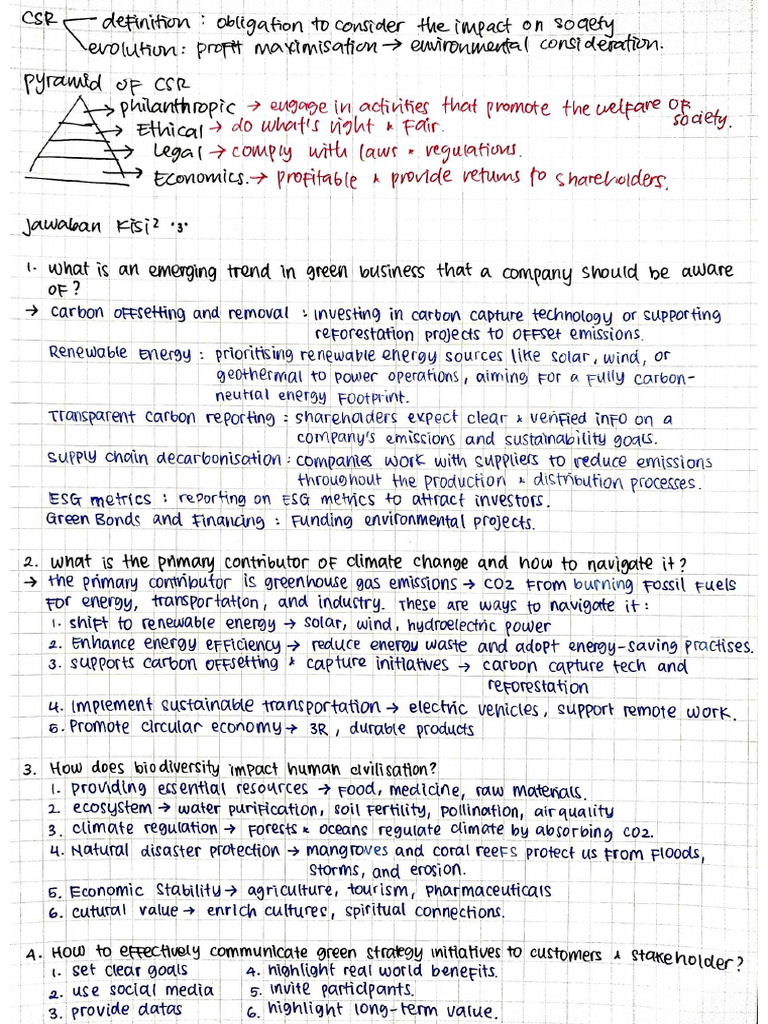 CSR definition : obligation to consider the impact on society
evolution : profit maximisation → environmental consideration.
pyramid of CSR
philanthropic → engage in activities that promote the welfare of society.
Ethical → do what's right & fair.
Legal → comply with laws & regulations.
Economics. → profitable & provide returns to shareholders.
Jawaban Kisi² '3'
1. What is an emerging trend in green business that a company should be aware
of?
→ Carbon offsetting and removal : investing in carbon capture technology or supporting
reforestation projects to offset emissions.
Renewable Energy : prioritising renewable energy sources like solar, wind, or
geothermal to power operations, aiming for a fully carbon-
neutral energy footprint.
Transparent carbon reporting : shareholders expect clear & verified info on a
company's emissions and sustainability goals.
Supply chain decarbonisation : companies work with suppliers to reduce emissions
throughout the production & distribution processes.
ESG metrics : reporting on ESG metrics to attract investors.
Green Bonds and Financing : Funding environmental projects.
2. What is the primary contributor of climate change and how to navigate it?
→ the primary contributor is greenhouse gas emissions → CO2 from burning fossil fuels
for energy, transportation, and industry. These are ways to navigate it :
1. shift to renewable energy → solar, wind, hydroelectric power
2. Enhance energy efficiency → reduce energy waste and adopt energy-saving practises.
3. supports carbon offsetting & capture initiatives → carbon capture tech and
reforestation
4. Implement sustainable transportation → electric vehicles, support remote work.
5. Promote circular economy → 3R, durable products
3. How does biodiversity impact human civilisation?
1. providing essential resources → food, medicine, raw materials.
2 ecosystem → water purification, soil fertility, pollination, air quality
3. climate regulation → forests & oceans regulate climate by absorbing CO2.
4. Natural disaster protection → mangroves and coral reefs protect us from floods,
storms, and erosion.
5. Economic Stability → agriculture, tourism, pharmaceuticals
6. cutural value → enrich cultures, spiritual connections.
4. How to effectively communicate green strategy initiatives to customers & stakeholder?
1. set clear goals 4. highlight real world benefits.
2. use social media 5. invite participants.
3. provide datas 6. highlight long-term value.